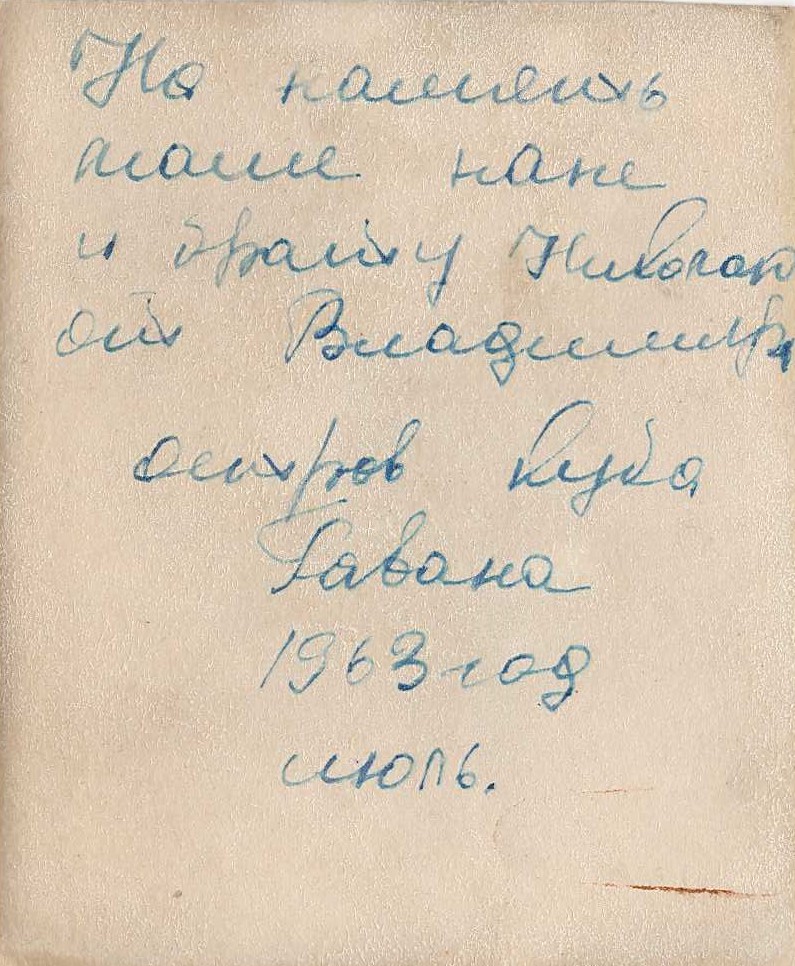 На память
маме папе
и брату Николаю
от Владимира
остров Куба
Гавана
1963 год
июль.